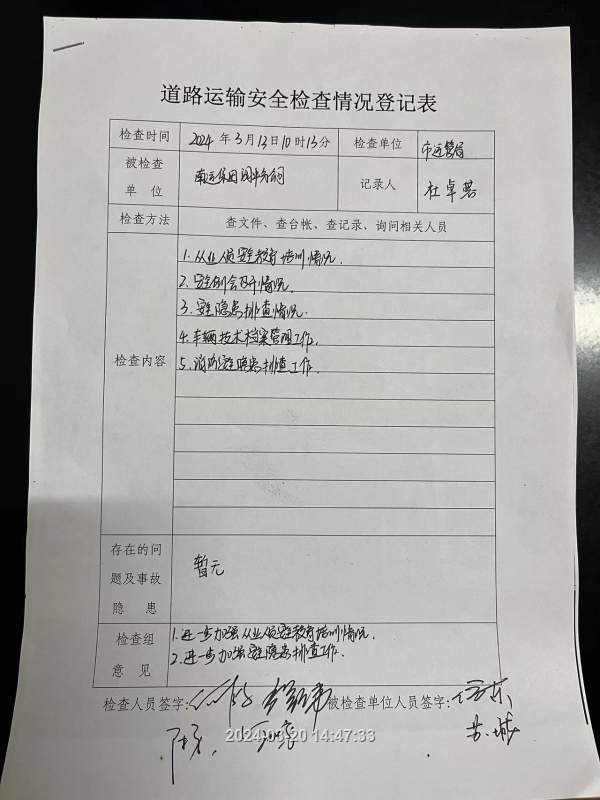 道路运输安全检查情况登记表
检查时间 2024 年 3 月 13 日 10 时 13 分 检查单位 市运管局
被检查单位 南运集团 记录人 杜卓
检查方法 查文件、查台帐、查记录、询问相关人员
检查内容
1. 从业人员安全教育培训情况.
2. 安全例会召开情况.
3. 安全隐患排查情况.
4. 车辆技术档案管理工作.
5. 消防安全隐患排查工作.
存在的问题及事故隐患 暂无
检查组意见
1. 进一步加强从业人员安全教育培训情况.
2. 进一步加强安全隐患排查工作.
检查人员签字: 被检查单位人员签字:
2024-03-20 14:47:33